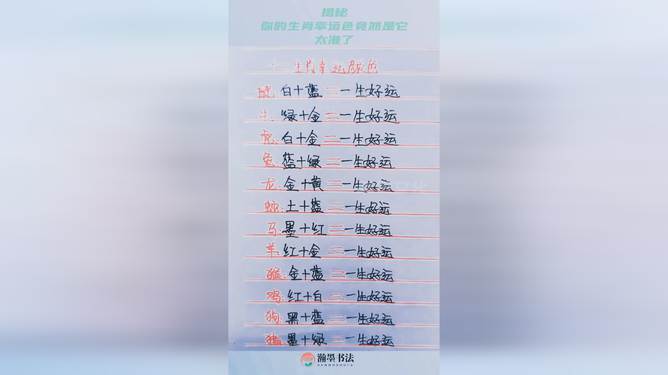 揭秘
你的生肖幸运色竟然是它
太准了
十二生肖幸运颜色
鼠:白+蓝=一生好运
牛:绿+金=一生好运
虎:白+金=一生好运
兔:蓝+绿=一生好运
龙:金+黄=一生好运
蛇:土+蓝=一生好运
马:墨+红=一生好运
羊:红+金=一生好运
猴:金+蓝=一生好运
鸡:红+白=一生好运
狗:黑+蓝=一生好运
猪:墨+绿=一生好运
瀚墨书法
HANMOSHUFA